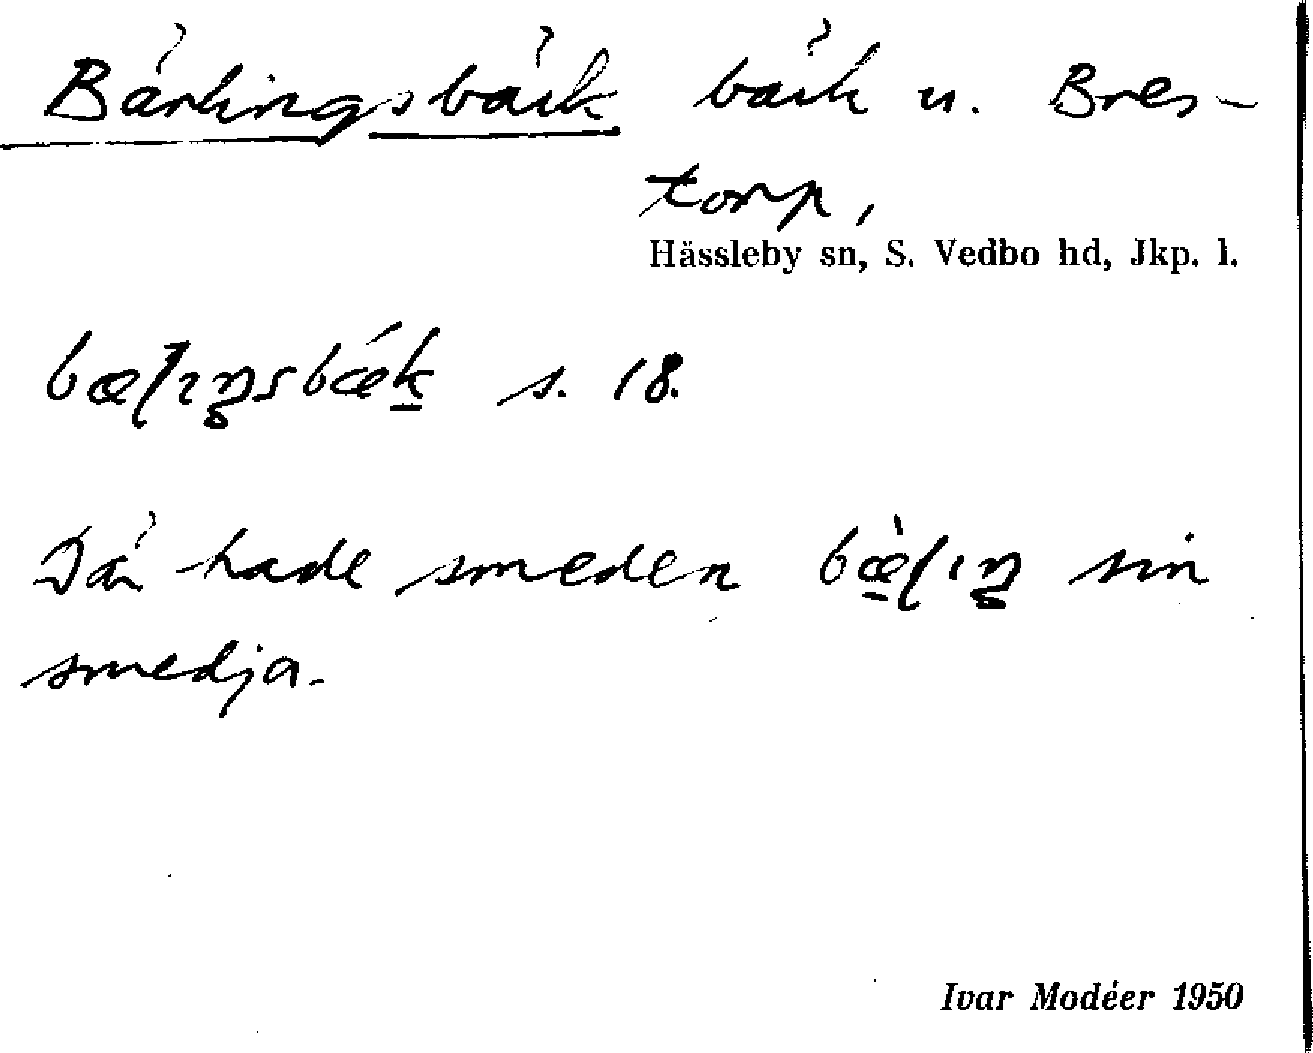 Bärlingsbäck bäck u. Bres-
torp,
Hässleby sn, S. Vedbo hd, Jkp. l.
bæɭıŋsbǽk s. 18.
Där hade smeden bæ̀ɭıŋ sin
smedja.
Ivar Modéer 1950